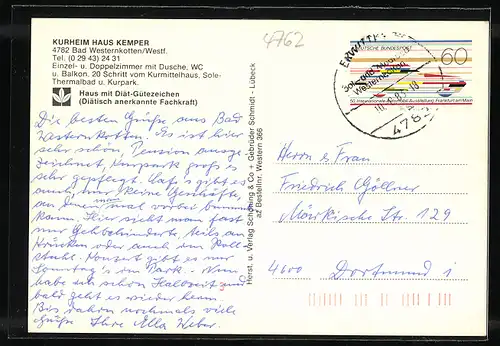 KURHEIM HAUS KEMPER
4782 Bad Westernkotten/Westf.
Tel. (0 29 43) 24 31
Einzel- u. Doppelzimmer mit Dusche, WC
u. Balkon. 20 Schritt vom Kurmittelhaus, Sole-
Thermalbad u. Kurpark.
Haus mit Diät-Gütezeichen
(Diätisch anerkannte Fachkraft)
4762
Die besten Grüße aus Bad
Westernkotten. Es ist hier
sehr schön, Pension ausge-
zeichnet, Kurpark groß u.
sehr gepflegt. Was's gibt es
auch nur keine Geschäfte,
an denen man vorbei bummeln
kann. Hier sieht man fast
nur Gehbehinderte, teils an
Krücken oder auch im Roll
stuhl. Konzert gibt es nur
Sonntag's im Park. Nun
habe ich schon Halbzeit und
bald geht es wieder heim.
Bis dahin nochmals viele
Grüße Ihre Ella Weber.
Horst. u. Verlag Schöning & Co + Gebrüder Schmidt - Lübeck
aZ Bestellnr. Western 366
DEUTSCHE BUNDESPOST
60
50. Internationale Automobil-Ausstellung Frankfurt am Main
Westernkotten
478
Herrn u. Frau
Friedrich Göllner
Märkische Str. 129
4600 Dortmund 1